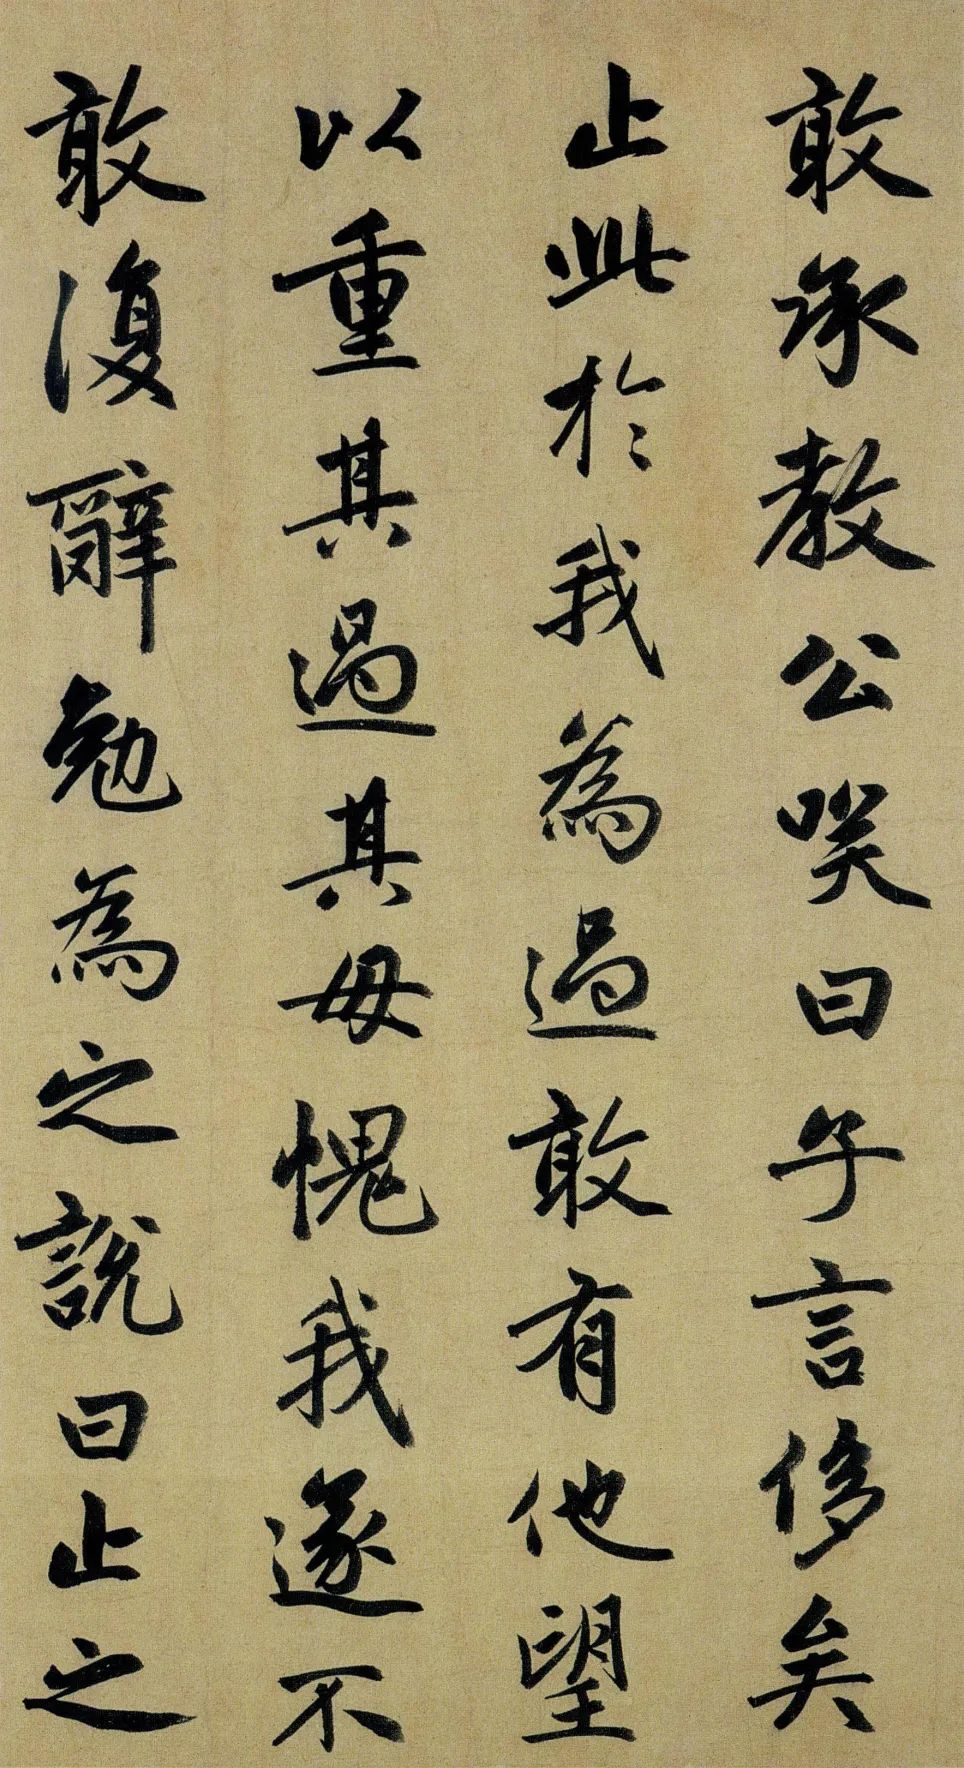 敢承教公哭曰子言侈矣
止此於我為過敢有他望
以重其過其毋愧我遂不
敢復辭勉為之說曰止之